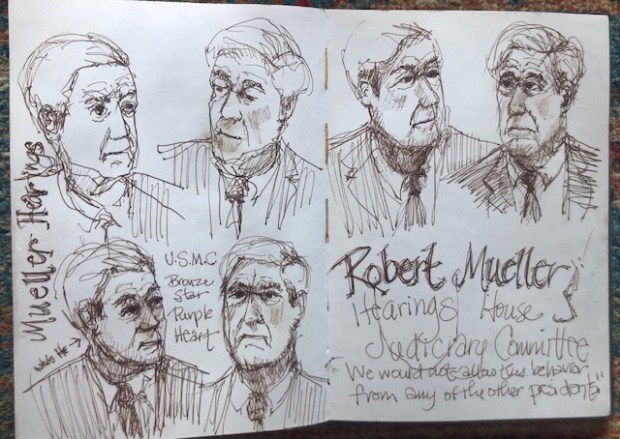 Mueller Hearings
U.S.M.C.
Bronze
Star
Purple
Heart
Robert Mueller
Hearings House
Judiciary Committee
We would not allow this behavior
from any of the other presidents"